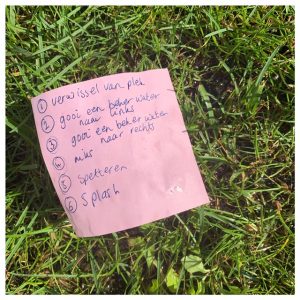 ① verwissel van plek
② gooi een beker water
naar links
③ gooi een beker water
naar rechts
④ niks
⑤ spetteren
⑥ Splash